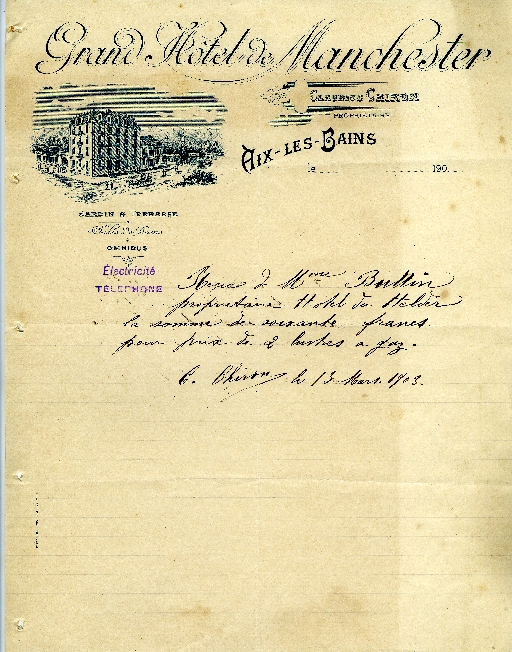 Grand Hôtel de Manchester
PROPRIÉTAIRE
AIX-LES-BAINS
le 190
JARDIN & TERRASSE
OMNIBUS
Électricité
TÉLÉPHONE
Mme Buttin
propriétaire Hotel du Helder
la somme de soixante francs
pour prix de 2 lustres a gaz.
C. Chiron le 13 Mars 1903.